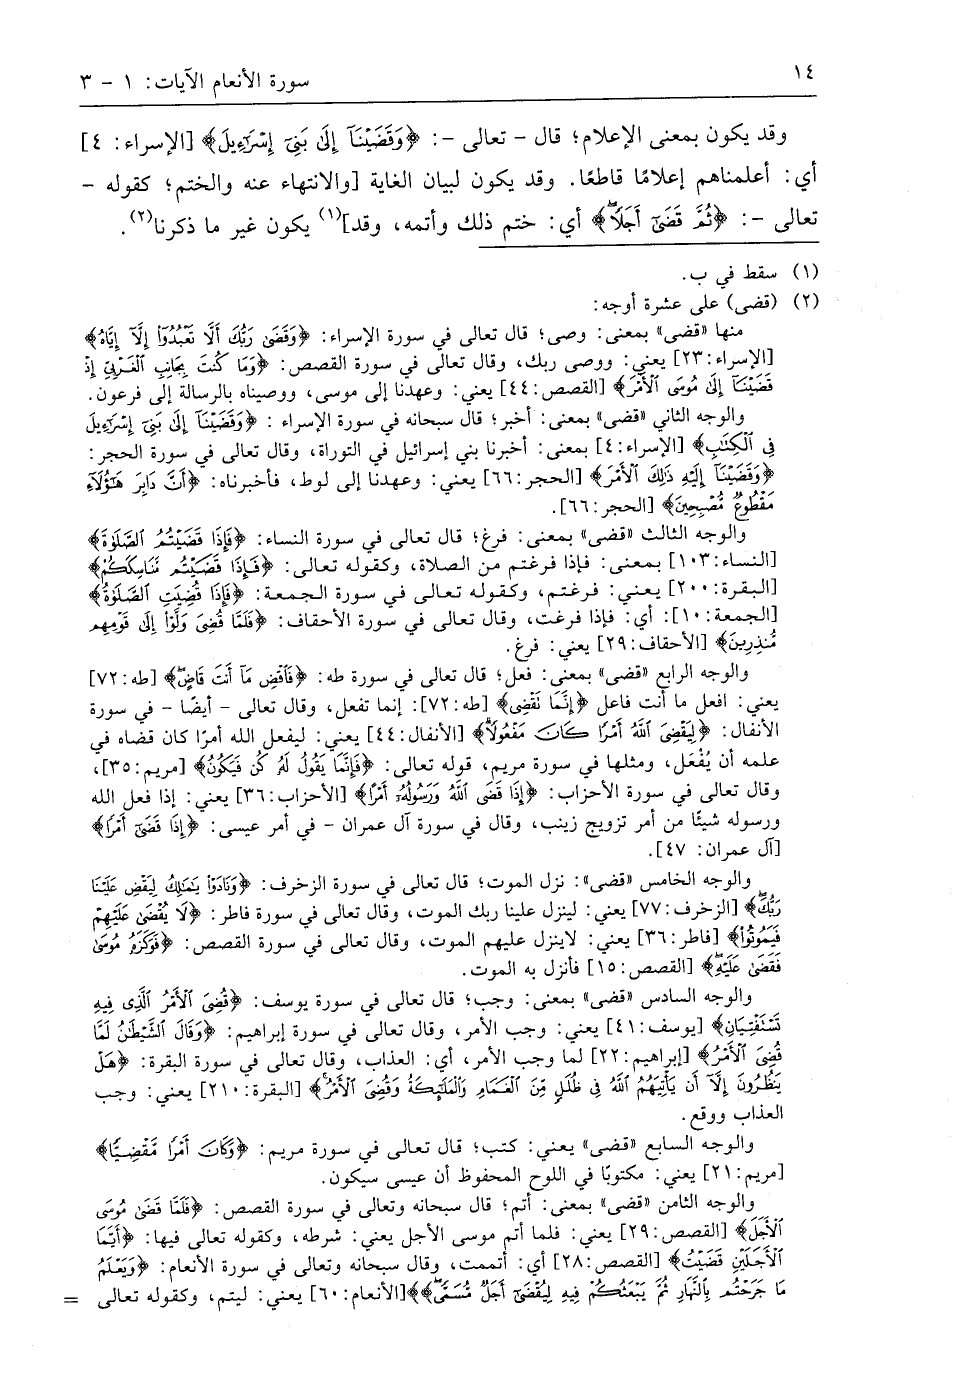 ١٤
سورة الأنعام الآيات: ١ - ٣
وقد يكون بمعنى الإعلام؛ قال - تعالى -: ﴿وَقَضَيْنَآ إِلَىٰ بَنِىٓ إِسْرَٰٓءِيلَ﴾ [الإسراء: ٤]
أي: أعلمناهم إعلامًا قاطعًا. وقد يكون لبيان الغاية [والانتهاء عنه والختم؛ كقوله -
تعالى -: ﴿ثُمَّ قَضَىٰٓ أَجَلًاۖ﴾ أي: ختم ذلك وأتمه، وقد](١) يكون غير ما ذكرنا(٢).
(١) سقط في ب.
(٢) (قضى) على عشرة أوجه:
منها «قضى» بمعنى: وصى؛ قال تعالى في سورة الإسراء: ﴿وَقَضَىٰ رَبُّكَ أَلَّا تَعْبُدُوٓا۟ إِلَّآ إِيَّاهُ﴾
[الإسراء:٢٣] يعني: ووصى ربك، وقال تعالى في سورة القصص: ﴿وَمَا كُنتَ بِجَانِبِ ٱلْغَرْبِىِّ إِذْ
قَضَيْنَآ إِلَىٰ مُوسَى ٱلْأَمْرَ﴾ [القصص:٤٤] يعني: وعهدنا إلى موسى، ووصيناه بالرسالة إلى فرعون.
والوجه الثاني «قضى» بمعنى: أخبر؛ قال سبحانه في سورة الإسراء : ﴿وَقَضَيْنَآ إِلَىٰ بَنِىٓ إِسْرَٰٓءِيلَ
فِى ٱلْكِتَٰبِ﴾ [الإسراء:٤] بمعنى: أخبرنا بني إسرائيل في التوراة، وقال تعالى في سورة الحجر:
﴿وَقَضَيْنَآ إِلَيْهِ ذَٰلِكَ ٱلْأَمْرَ﴾ [الحجر:٦٦] يعني: وعهدنا إلى لوط، فأخبرناه: ﴿أَنَّ دَابِرَ هَٰٓؤُلَآءِ
مَقْطُوعٌ مُّصْبِحِينَ﴾ [الحجر:٦٦].
والوجه الثالث «قضى» بمعنى: فرغ؛ قال تعالى في سورة النساء: ﴿فَإِذَا قَضَيْتُمُ ٱلصَّلَوٰةَ﴾
[النساء:١٠٣] بمعنى: فإذا فرغتم من الصلاة، وكقوله تعالى: ﴿فَإِذَا قَضَيْتُم مَّنَاسِكَكُمْ﴾
[البقرة:٢٠٠] يعني: فرغتم، وكقوله تعالى في سورة الجمعة: ﴿فَإِذَا قُضِيَتِ ٱلصَّلَوٰةُ﴾
[الجمعة:١٠]: أي: فإذا فرغت، وقال تعالى في سورة الأحقاف: ﴿فَلَمَّا قُضِىَ وَلَّوْا۟ إِلَىٰ قَوْمِهِم
مُّنذِرِينَ﴾ [الأحقاف:٢٩] يعني: فرغ.
والوجه الرابع «قضى» بمعنى: فعل؛ قال تعالى في سورة طه: ﴿فَٱقْضِ مَآ أَنتَ قَاضٍۖ﴾ [طه:٧٢]
يعني: افعل ما أنت فاعل ﴿إِنَّمَا نَقْضِى﴾ [طه:٧٢]: إنما تفعل، وقال تعالى - أيضًا - في سورة
الأنفال: ﴿لِيَقْضِىَ ٱللَّهُ أَمْرًا كَانَ مَفْعُولًاۗ﴾ [الأنفال:٤٤] يعني: ليفعل الله أمرًا كان قضاه في
علمه أن يُفْعَل، ومثلها في سورة مريم، قوله تعالى: ﴿فَإِنَّمَا يَقُولُ لَهُۥ كُن فَيَكُونُ﴾ [مريم:٣٥]،
وقال تعالى في سورة الأحزاب: ﴿إِذَا قَضَى ٱللَّهُ وَرَسُولُهُۥٓ أَمْرًا﴾ [الأحزاب:٣٦] يعني: إذا فعل الله
ورسوله شيئًا من أمر تزويج زينب، وقال في سورة آل عمران - في أمر عيسى: ﴿إِذَا قَضَىٰٓ أَمْرًا﴾
[آل عمران: ٤٧].
والوجه الخامس «قضى»: نزل الموت؛ قال تعالى في سورة الزخرف: ﴿وَنَادَوْا۟ يَٰمَٰلِكُ لِيَقْضِ عَلَيْنَا
رَبُّكَۖ﴾ [الزخرف:٧٧] يعني: لينزل علينا ربك الموت، وقال تعالى في سورة فاطر: ﴿لَا يُقْضَىٰ عَلَيْهِمْ
فَيَمُوتُوا۟﴾ [فاطر:٣٦] يعني: لاينزل عليهم الموت، وقال تعالى في سورة القصص: ﴿فَوَكَزَهُۥ مُوسَىٰ
فَقَضَىٰ عَلَيْهِۖ﴾ [القصص:١٥] فأنزل به الموت.
والوجه السادس «قضى» بمعنى: وجب؛ قال تعالى في سورة يوسف: ﴿قُضِىَ ٱلْأَمْرُ ٱلَّذِى فِيهِ
تَسْتَفْتِيَانِ﴾ [يوسف:٤١] يعني: وجب الأمر، وقال تعالى في سورة إبراهيم: ﴿وَقَالَ ٱلشَّيْطَٰنُ لَمَّا
قُضِىَ ٱلْأَمْرُ﴾ [إبراهيم:٢٢] لما وجب الأمر، أي: العذاب، وقال تعالى في سورة البقرة: ﴿هَلْ
يَنظُرُونَ إِلَّآ أَن يَأْتِيَهُمُ ٱللَّهُ فِى ظُلَلٍ مِّنَ ٱلْغَمَامِ وَٱلْمَلَٰٓئِكَةُ وَقُضِىَ ٱلْأَمْرُۚ﴾ [البقرة:٢١٠] يعني: وجب
العذاب ووقع.
والوجه السابع «قضى» يعني: كتب؛ قال تعالى في سورة مريم: ﴿وَكَانَ أَمْرًا مَّقْضِيًّا﴾
[مريم:٢١] يعني: مكتوبًا في اللوح المحفوظ أن عيسى سيكون.
والوجه الثامن «قضى» بمعنى: أتم؛ قال سبحانه وتعالى في سورة القصص: ﴿فَلَمَّا قَضَىٰ مُوسَى
ٱلْأَجَلَ﴾ [القصص:٢٩] يعني: فلما أتم موسى الأجل يعني: شرطه، وكقوله تعالى فيها: ﴿أَيَّمَا
ٱلْأَجَلَيْنِ قَضَيْتُ﴾ [القصص:٢٨] أي: أتممت، وقال سبحانه وتعالى في سورة الأنعام: ﴿وَيَعْلَمُ
مَا جَرَحْتُم بِٱلنَّهَارِ ثُمَّ يَبْعَثُكُمْ فِيهِ لِيُقْضَىٰٓ أَجَلٌ مُّسَمًّىۖ﴾﴾[الأنعام:٦٠] يعني: ليتم، وكقوله تعالى =